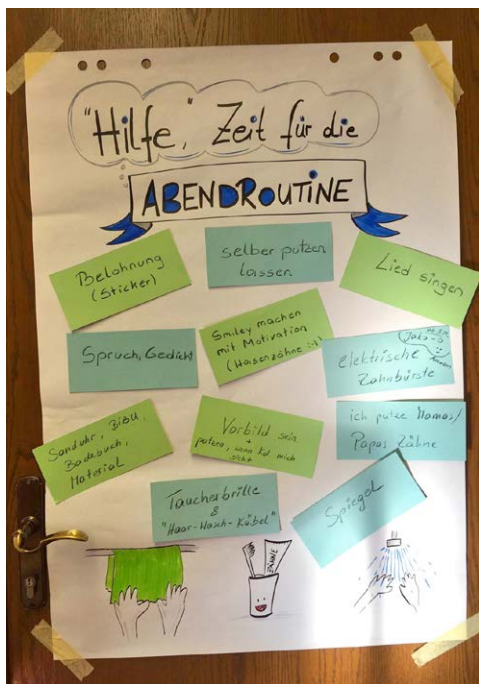 "Hilfe," Zeit für die
ABENDROUTINE
Belohnung
(Sticker)
selber putzen
lassen
Lied singen
Spruch, Gedicht
Smiley machen
mit Motivation
(Hasenzähne :-)
elektrische
Zahnbürste
Sanduhr, Bibu,
Badebuch,
Material
Vorbild sein
+
putzen, wenn Kd mich
sieht
ich putze Mamas/
Papas Zähne
Taucherbrille
&
"Haar-Wasch-Kübel"
Spiegel